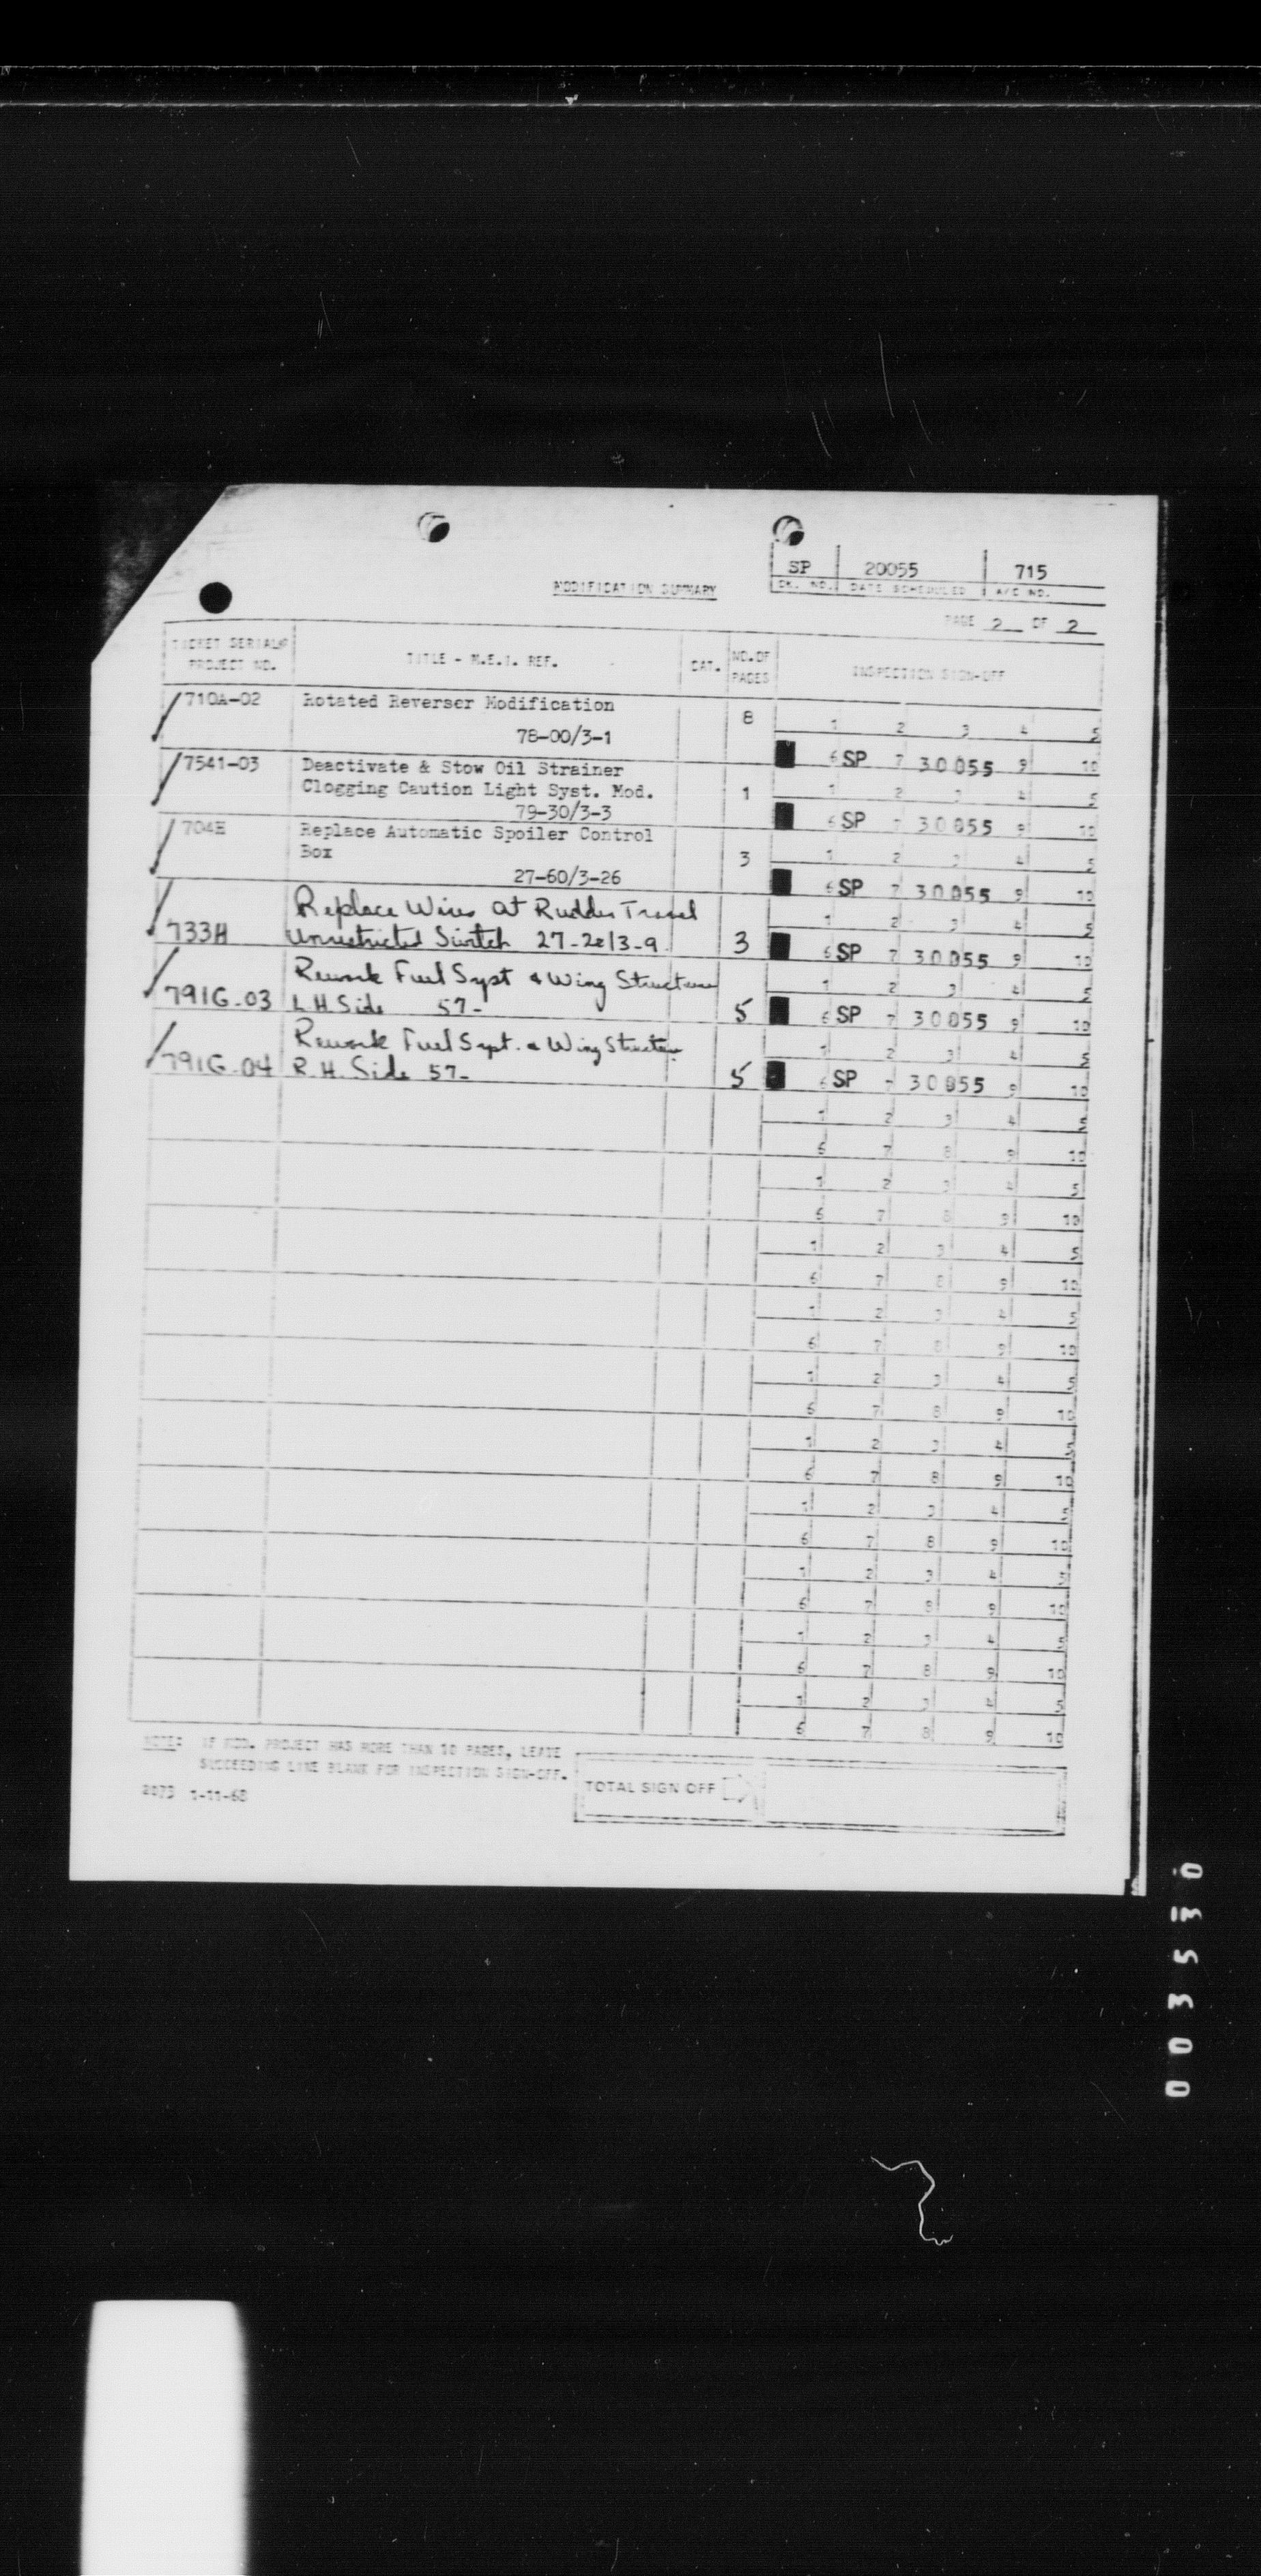 SP 20055 715
MODIFICATION SUMMARY CK. NO. DATE SCHEDULED A/C NO.
PAGE 2 OF 2
TICKET SERIAL# PROJECT NO. TITLE - M.E.I. REF. CAT. NO. OF PAGES INSPECTION SIGN-OFF
710A-02 Rotated Reverser Modification 8 1 2 3 4 5
78-00/3-1
6 SP 7 30055 9 10
7541-03 Deactivate & Stow Oil Strainer
Clogging Caution Light Syst. Mod. 1 1 2 3 4 5
79-30/3-3
6 SP 7 30055 9 10
704E Replace Automatic Spoiler Control
Box 3 1 2 3 4 5
27-60/3-26
6 SP 7 30055 9 10
Replace Wires at Rudder Travel 1 2 3 4 5
733H Unrestricted Switch 27-20/3-9 3 6 SP 7 30055 9 10
Rework Fuel Syst & Wing Structure 1 2 3 4 5
791G-03 L.H. Side 57- 5 6 SP 7 30055 9 10
Rework Fuel Syst. & Wing Structure 1 2 3 4 5
791G-04 R.H. Side 57- 5 6 SP 7 30055 9 10
1 2 3 4 5
6 7 8 9 10
1 2 3 4 5
6 7 8 9 10
1 2 3 4 5
6 7 8 9 10
1 2 3 4 5
6 7 8 9 10
1 2 3 4 5
6 7 8 9 10
1 2 3 4 5
6 7 8 9 10
1 2 3 4 5
6 7 8 9 10
1 2 3 4 5
6 7 8 9 10
1 2 3 4 5
6 7 8 9 10
1 2 3 4 5
6 7 8 9 10
NOTE: IF MOD. PROJECT HAS MORE THAN 10 PAGES, LEAVE
SUCCEEDING LINE BLANK FOR INSPECTION SIGN-OFF.
TOTAL SIGN OFF
2073 1-11-68
003530